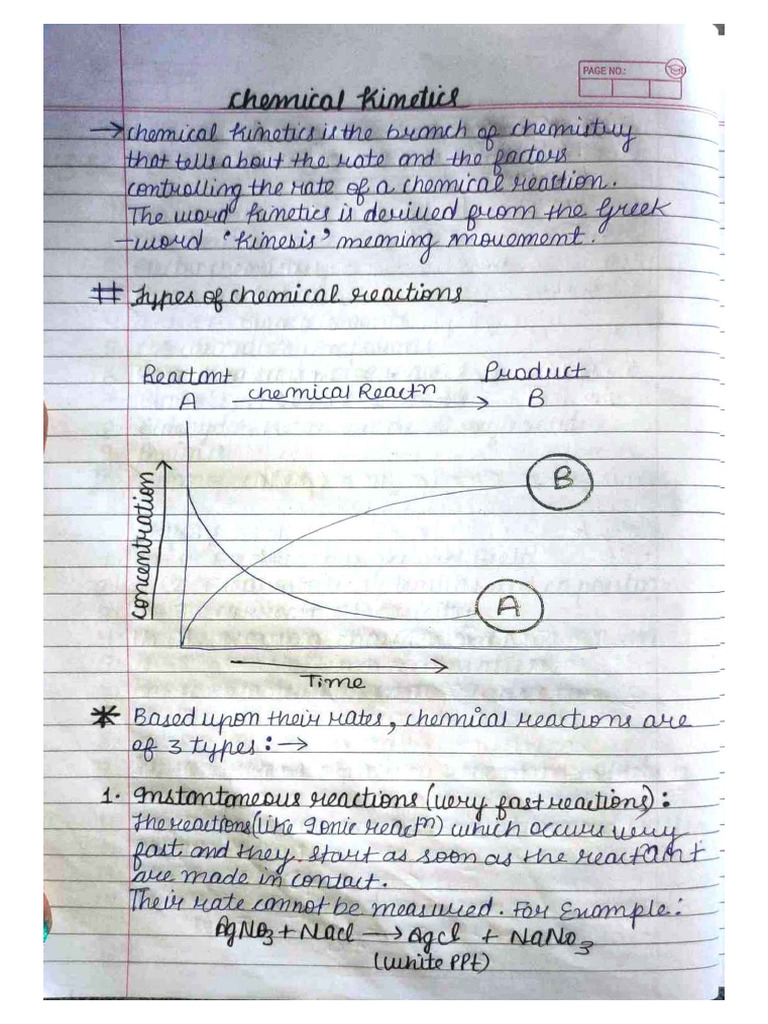 PAGE NO.:
Chemical Kinetics
→ Chemical kinetics is the branch of chemistry
that tells about the rate and the factors
controlling the rate of a chemical reaction.
The word kinetics is derived from the Greek
word 'kinesis' meaning movement.
# Types of chemical reactions
Reactant Product
A chemical Reactn → B
Concentration
B
A
Time
* Based upon their rates, chemical reactions are
of 3 types :→
1. Instantaneous reactions (very fast reactions) :
The reactions (like Ionic reactn) which occurs very
fast and they start as soon as the reactant
are made in contact.
Their rate cannot be measured. For Example :
AgNO3 + NaCl → AgCl + NaNO3
(White PPt)